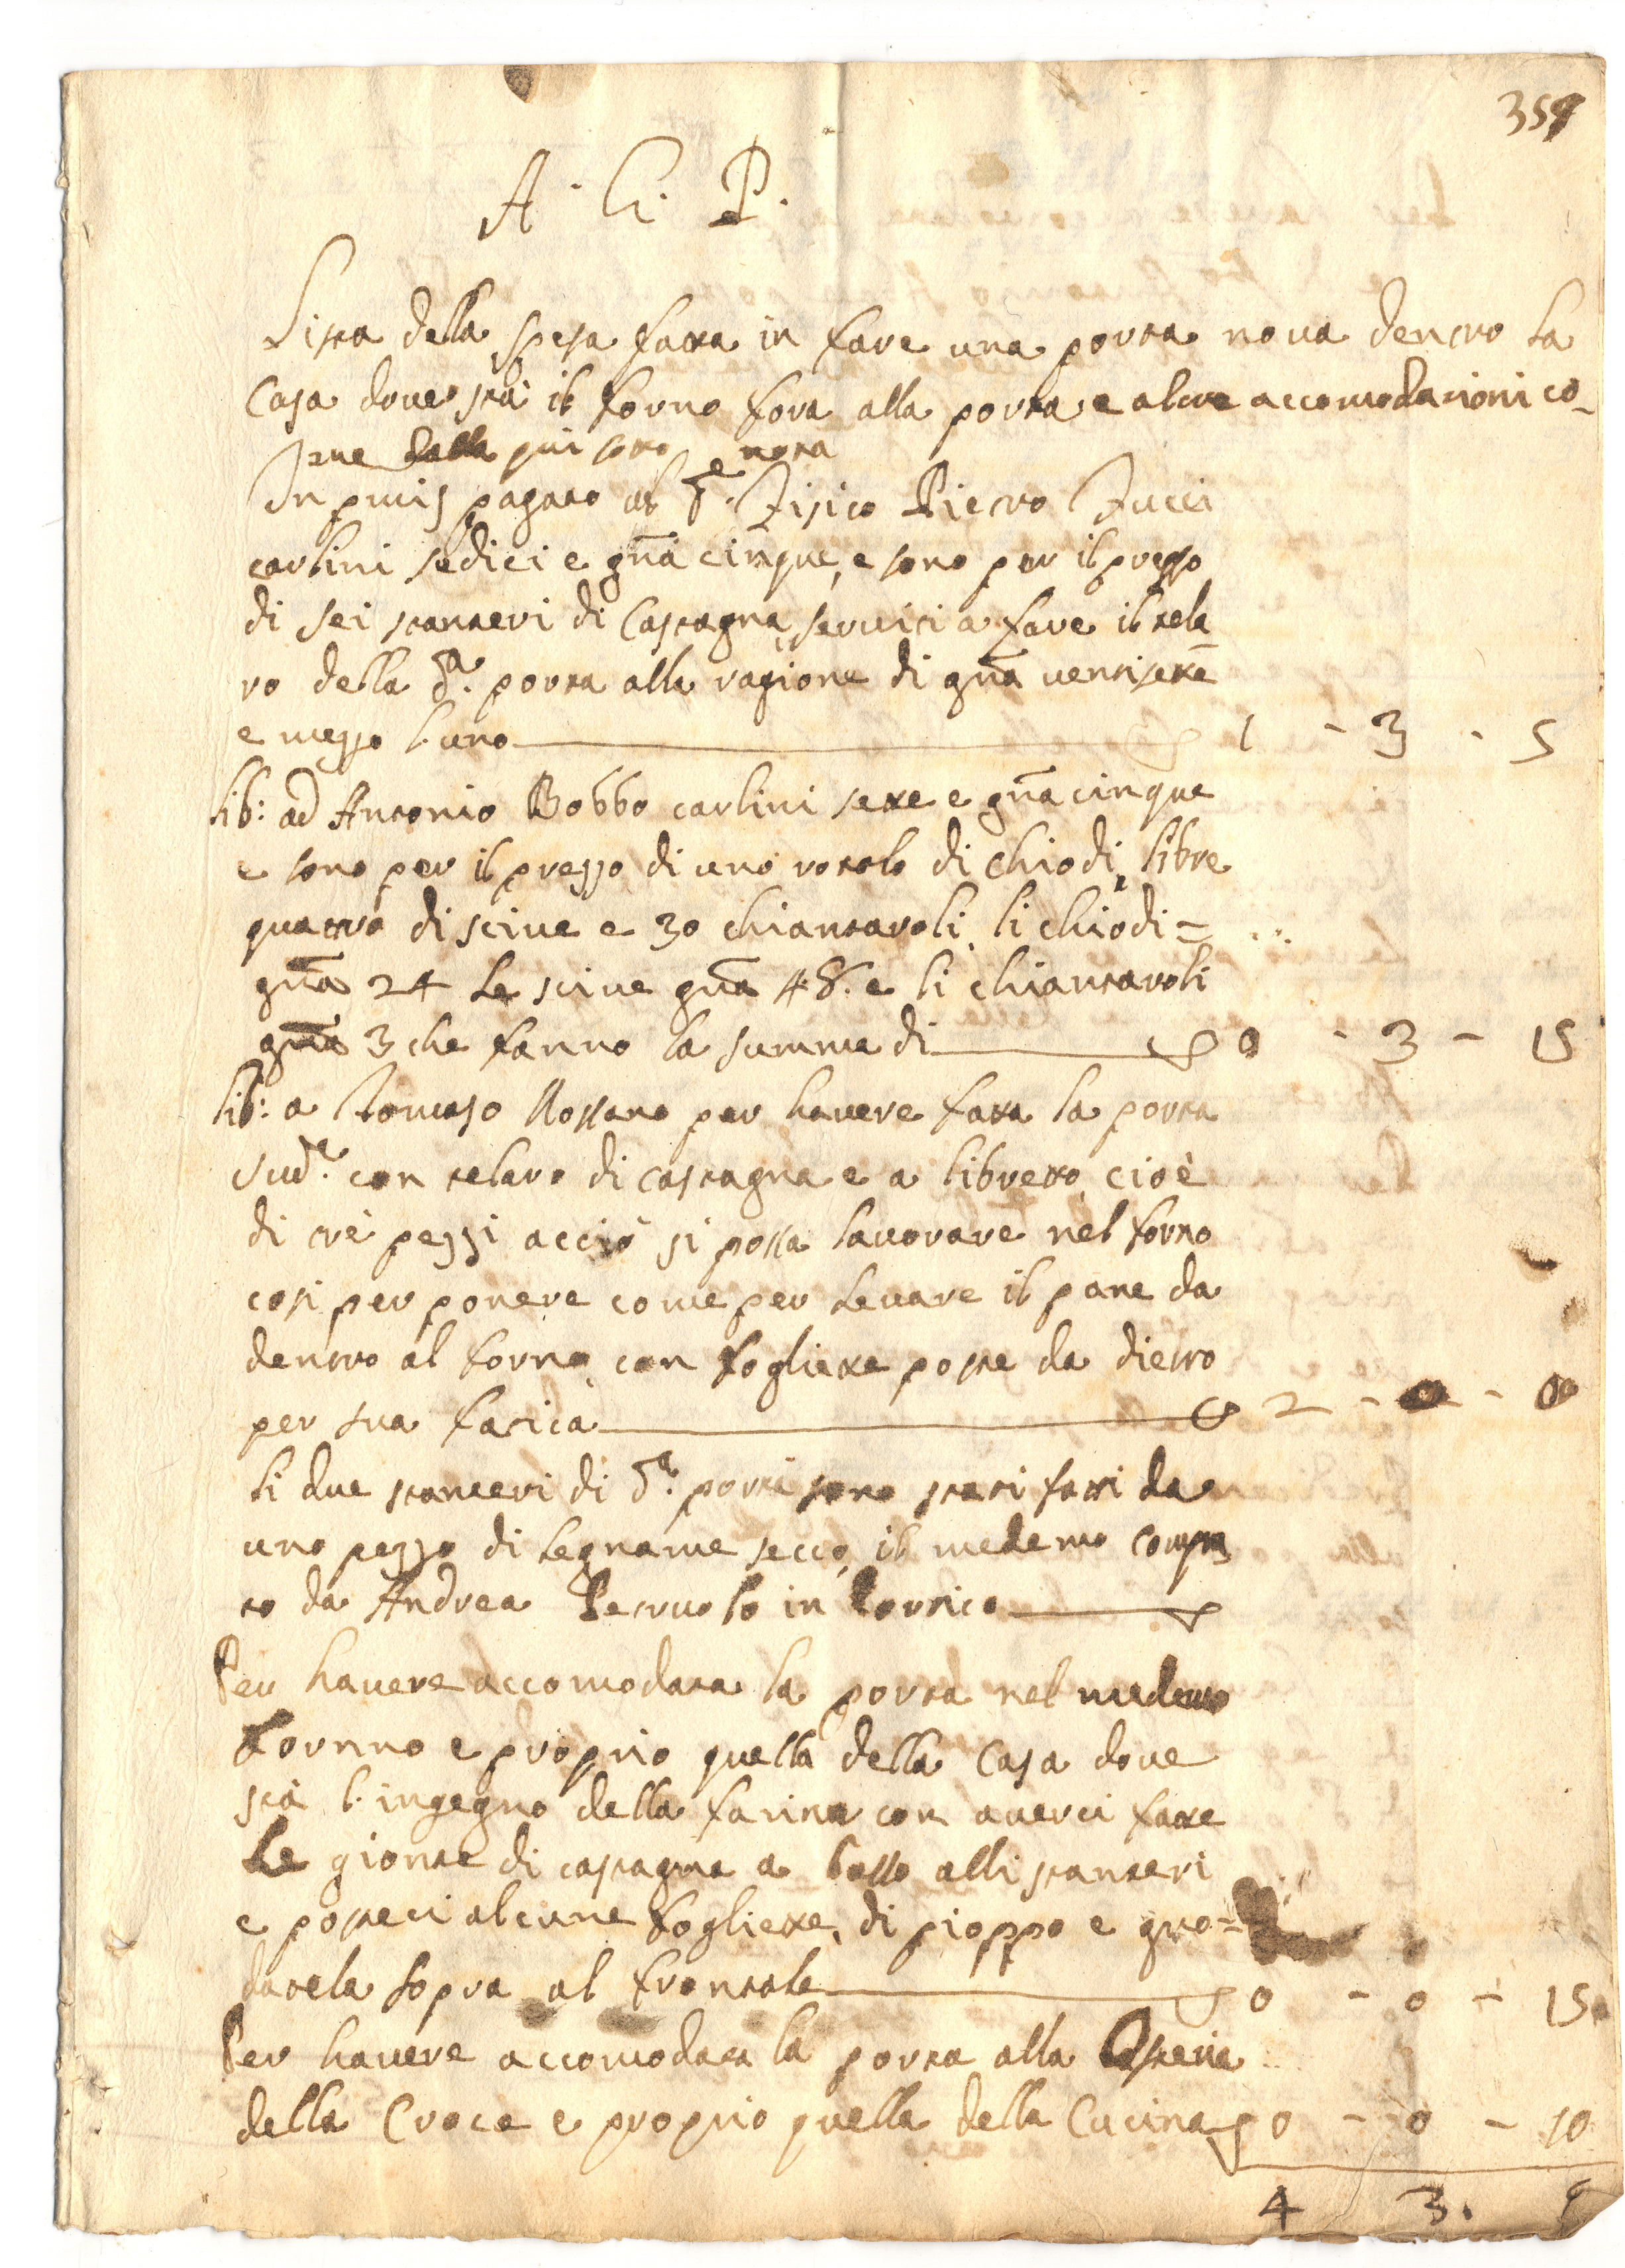 359
A. G. P.
Lista della spesa fatta in fare una porta nova dentro la
Casa dove stà il forno fora alla porta e altre accomodationi co-
me dalla qui sotto nota
In primis pagato al Sr. Fisico Pietro Fucci
carlini sedici e gña cinque, e sono per il prezzo
di sei stanteri di Castagna, serviti a fare il tela
ro della dª. porta alla ragione di gña ventisette
e mezzo l'uno 1 - 3 - 5
lib: ad Antonio Bobbo carlini sette e gña cinque
e sono per il prezzo di uno rotolo di chiodi, libre
quattro di scine e 30 chiantaroli, li chiodi =
gña 24 le scine gña 48. e li chiantaroli
gña 3 che fanno la summa di 0 - 3 - 15
lib: a Tomaso Rossano per havere fatta la porta
sudª. con telaro di castagna e a libretto, cioè
di trè pezzi acciò si possa lavorare nel forno
così per ponere come per levare il pane da
dentro al forno, con fogliette poste da dietro
per sua fatica 2 - 0 - 0
li due stanteri di dª. porta sono stati fatti da
uno pezzo di legname secco, il medemo compra
to da Andrea Petruolo in Torrico
Per havere accomodata la porta nel medemo
Fornno e proprio quella della Casa dove
stà l'ingegno della farina con averci fatte
Le gionte di castagna a basso alli stanteri
e posteci alcune fogliette, di pioppo e gua=
datela sopra al frontale 0 - 0 - 15
Per havere accomodata la porta alla Osteria
della Croce e proprio quella della Cucina 0 - 0 - 10
4 3. 5